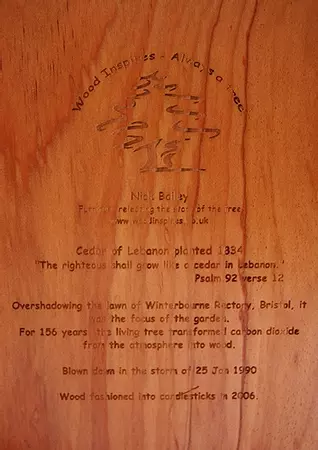 Wood Inspires - Always a tree
Nick Bailey
Furniture releasing the story of the tree
www.woodinspires.co.uk
Cedar of Lebanon planted 1834
"The righteous shall grow like a cedar in Lebanon."
Psalm 92 verse 12
Overshadowing the lawn of Winterbourne Rectory, Bristol, it
was the focus of the garden.
For 156 years this living tree transformed carbon dioxide
from the atmosphere into wood.
Blown down in the storm of 25 Jan 1990
Wood fashioned into candlesticks in 2006.